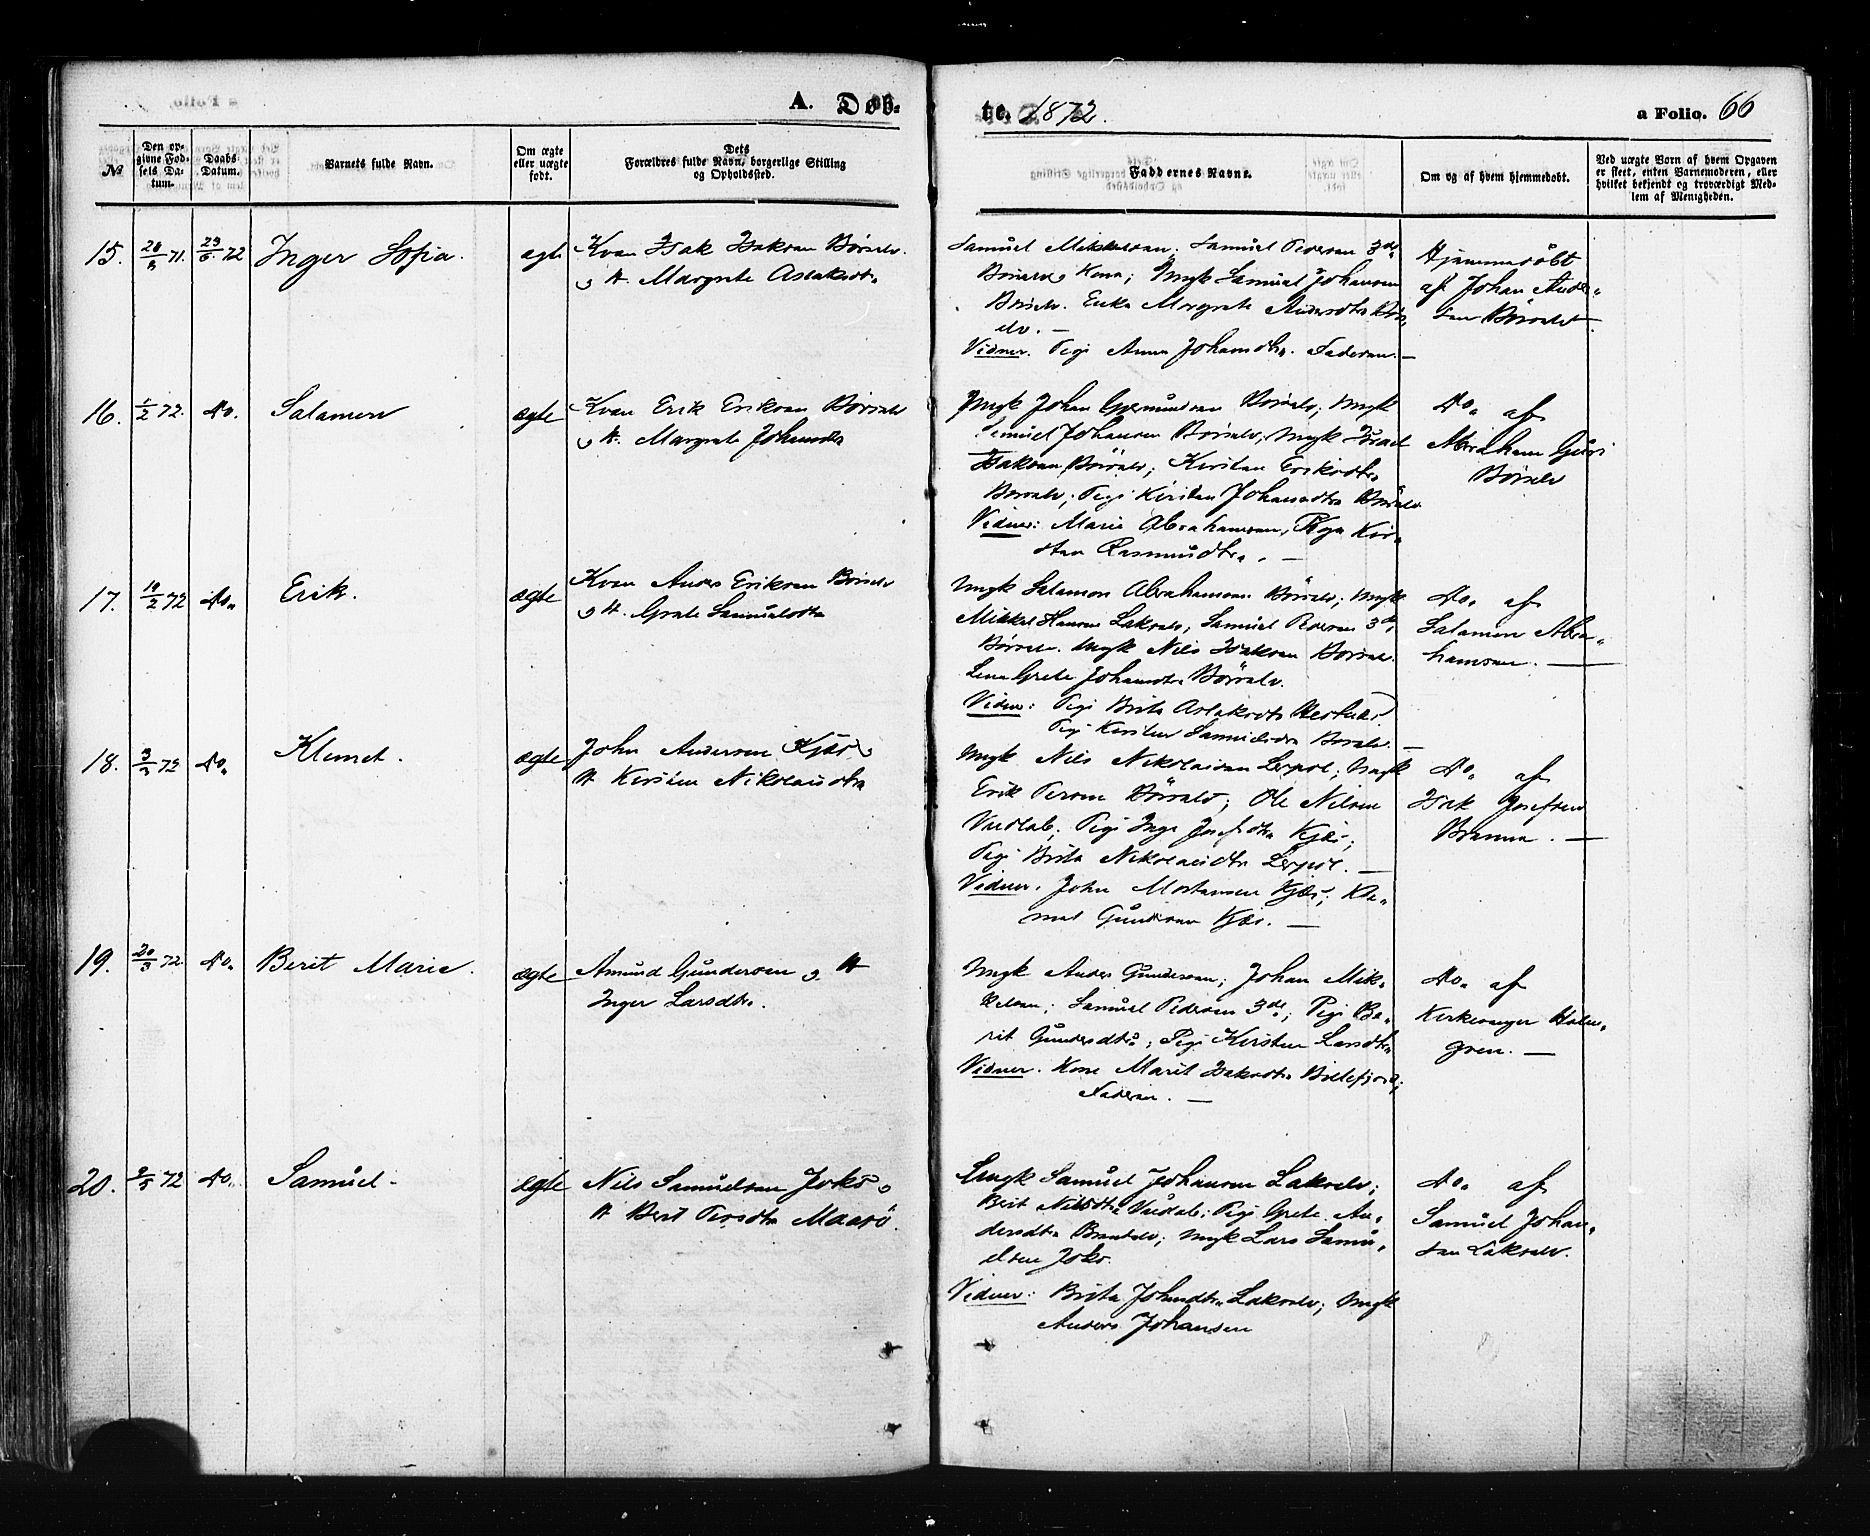 A. Døb-
te. 1872.
a Folio. 66
No
Den op-
givne Fød-
sels Da-
tum.
Daabs
Datum.
Barnets fulde Navn.
Om ægte
eller uægte
født.
Dets
Forældres fulde Navn, borgerlige Stilling
og Opholdssted.
Faddernes Navne.
Om og af hvem hjemmedøbt.
Ved uægte Børn af hvem Opgaven
er skeet, enten Barnemoderen, eller
hvilket bekjendt og troværdigt Med-
lem af Menigheden.
15.
71.
72
Inger Sofia.
ægte
Kvæn Isak Isaksen Børselv.
og H. Margrete Aslaksdtr
Samuel Mikkelsen. Samuel Pedersen 3de
Børselv Kona; Ungk Samuel Johansen
Børselv. Enke Margrete Andersdtr Børs-
elv. —
Vidner. Pige Anna Johansdtr. Faderen. —
Hjemmedøbt
af Johan Ander-
sen Børselv
16.
1/2 72.
do.
Salamon
ægte
Kvæn Erik Eriksen Børselv
og H. Margrete Johansdtr
Ungk Johan Børselv; Ungk
Samuel Johansen Børselv; Ungk Israel
Isaksen Børselv; Kirsten Eriksdtr
Børselv; Pige Kirsten Johansdtr Børselv
Vidner: Marie Abrahamsen, Kir-
sten Rasmusdtr. —
do. af
Abraham
Børselv
17.
10/2 72
do.
Erik.
ægte
Kvæn Anders Eriksen Børselv
og H. Grete Samuelsdtr
Ungk Salamon Abrahamsen Børselv; Ungk
Mikkel Hansen Lakselv; Samuel Pedersen 3de
Børselv. Ungk Nils Isaksen Børselv.
Lena Grete Johansdtr Børselv.
Vidner: Pige Brita Aslaksdtr
Pige Kirsten Samuelsdtr Børselv. —
do. af
Salamon Abra-
hamsen. —
18.
72
do.
Klemet.
ægte
John Andersen Kjæs og
H Kirsten Nikolaisdtr
Ungk Nils Nikolaisen Lerpol; Ungk
Erik Persen Børselv; Ole Nilsen
Pige Inga Josefsdtr Kjæs;
Pige Brita Nikolaisdtr Lerpol. —
Vidner. John Mortensen Kjæs; Kle-
met Gundersen Kjæs. —
do. af
Isak Josefsen
Brenna. —
19.
20/3 72
do.
Berit Marie.
ægte
Amund Gundersen og H
Inger Larsdtr.
Ungk Anders Gundersen; Johan Mik-
kelsen; Samuel Pedersen 3de; Pige Be-
rit Gundersdtr; Pige Kirsten Larsdtr
Vidner. Kone Marit Isaksdtr Billefjord;
Faderen. —
do. af
Kirkesanger Holm-
gren. —
20.
72
do.
Samuel.
ægte
Nils Samuelsen Joks og
H Berit Persdtr Maasø.
Ungk Samuel Johansen Lakselv;
Berit Nilsdtr Pige Grete An-
dersdtr Ungk Lars Samu-
elsen Joks.
Vidner: Brita Johnsdtr Lakselv; Ungk
Anders Johansen
do. af
Samuel Johan-
sen Lakselv.